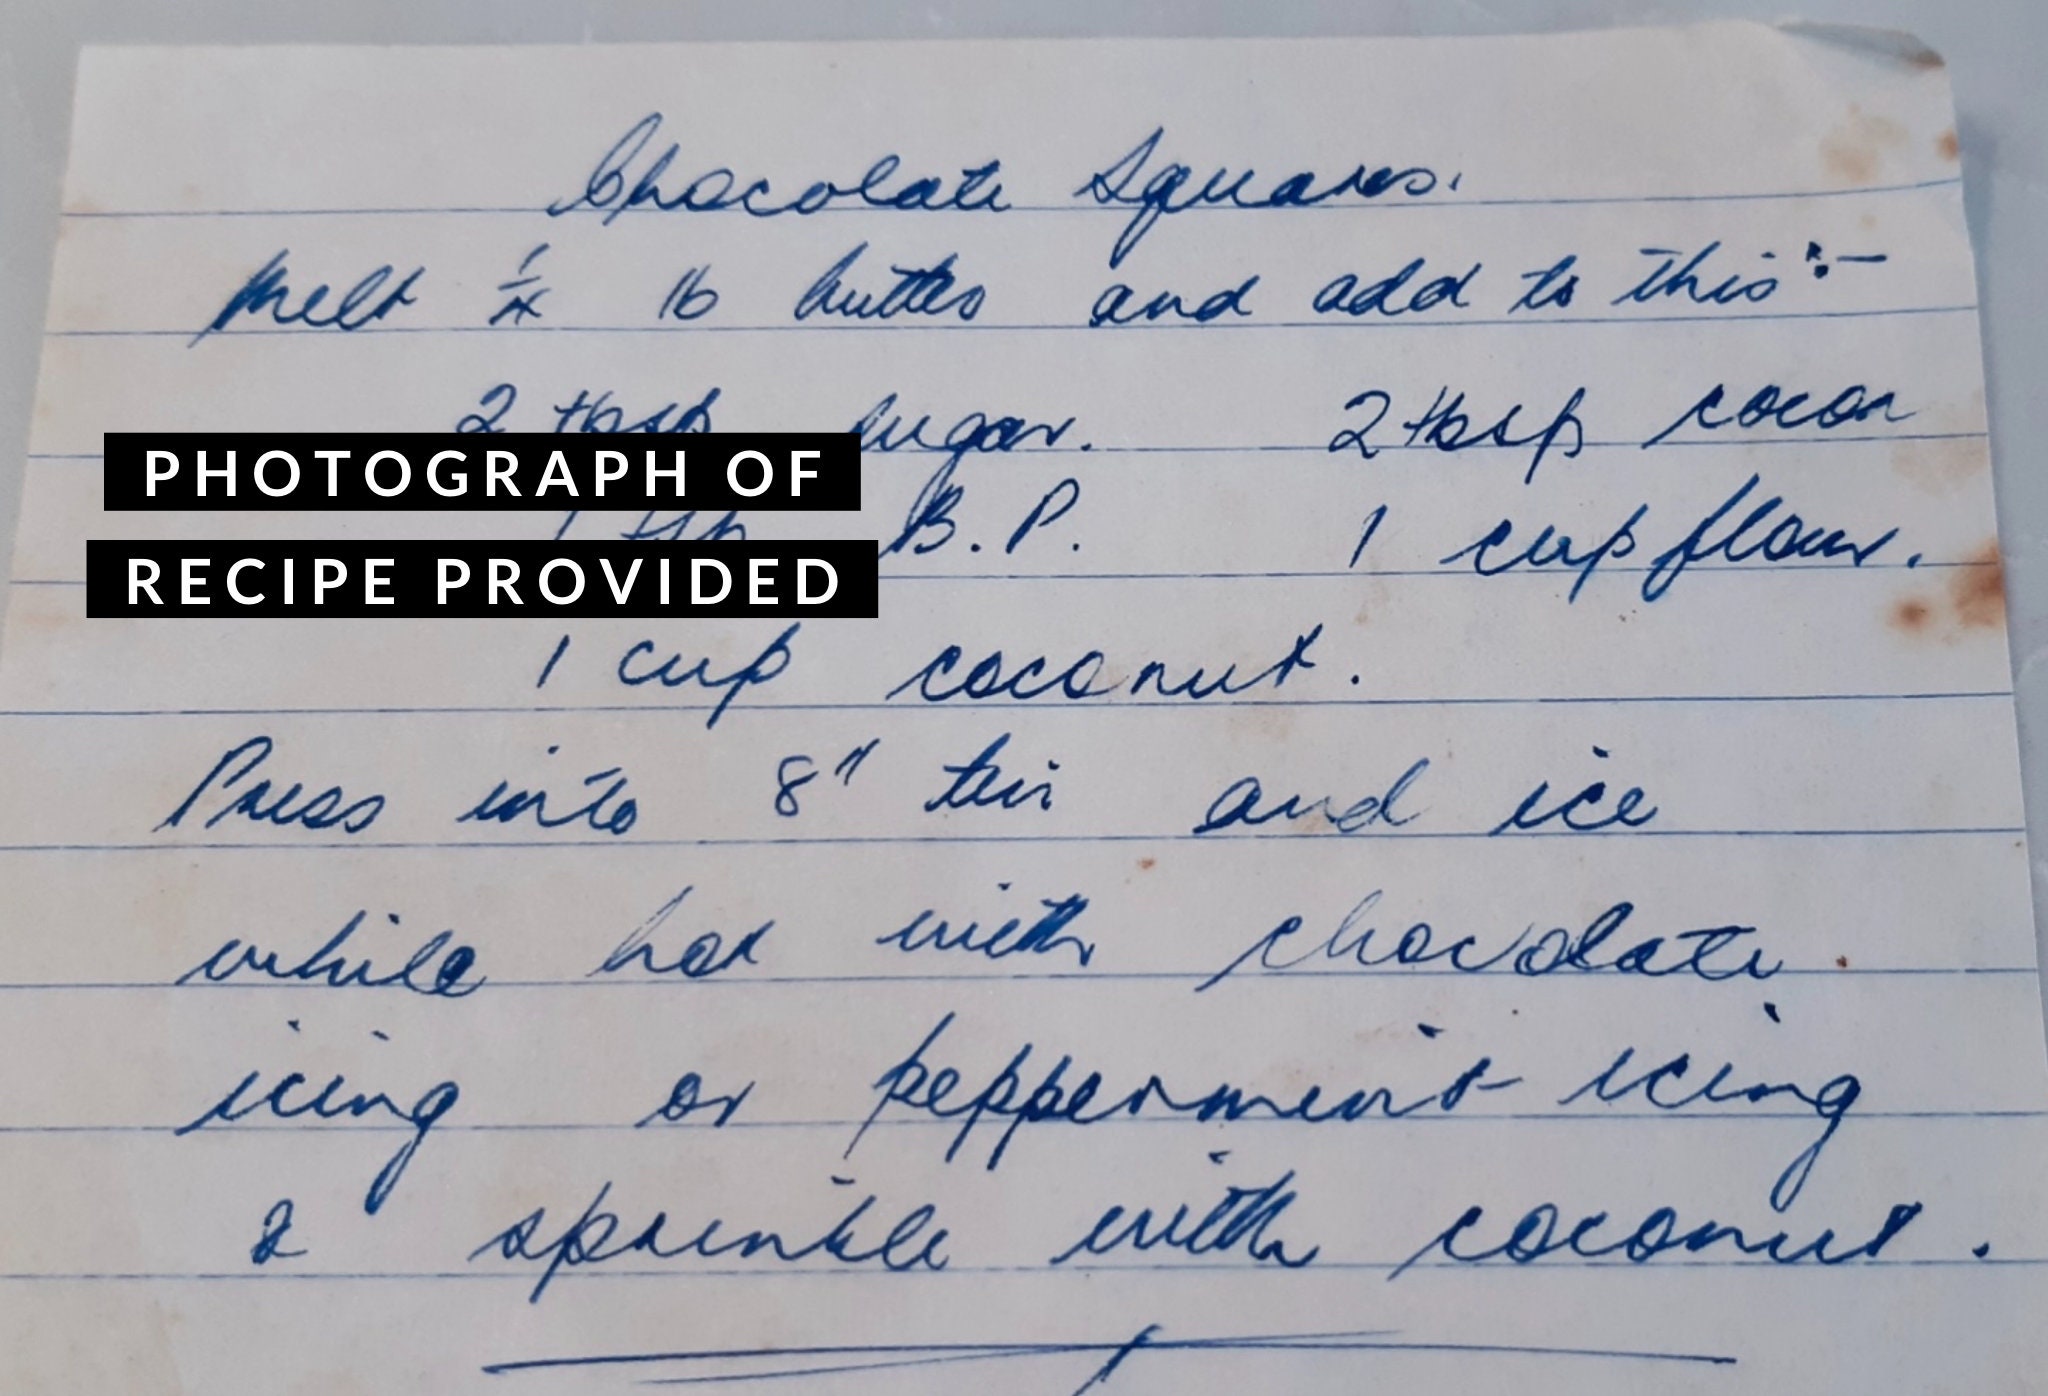 Chocolate Squares.
Melt 1/4 lb butter and add to this :-
2 tbsp sugar. 2 tbsp cocoa
PHOTOGRAPH OF
1 B.P. 1 cup flour.
RECIPE PROVIDED
1 cup coconut.
Press into 8" tin and ice
while hot with chocolate
icing or peppermint icing
& sprinkle with coconut.